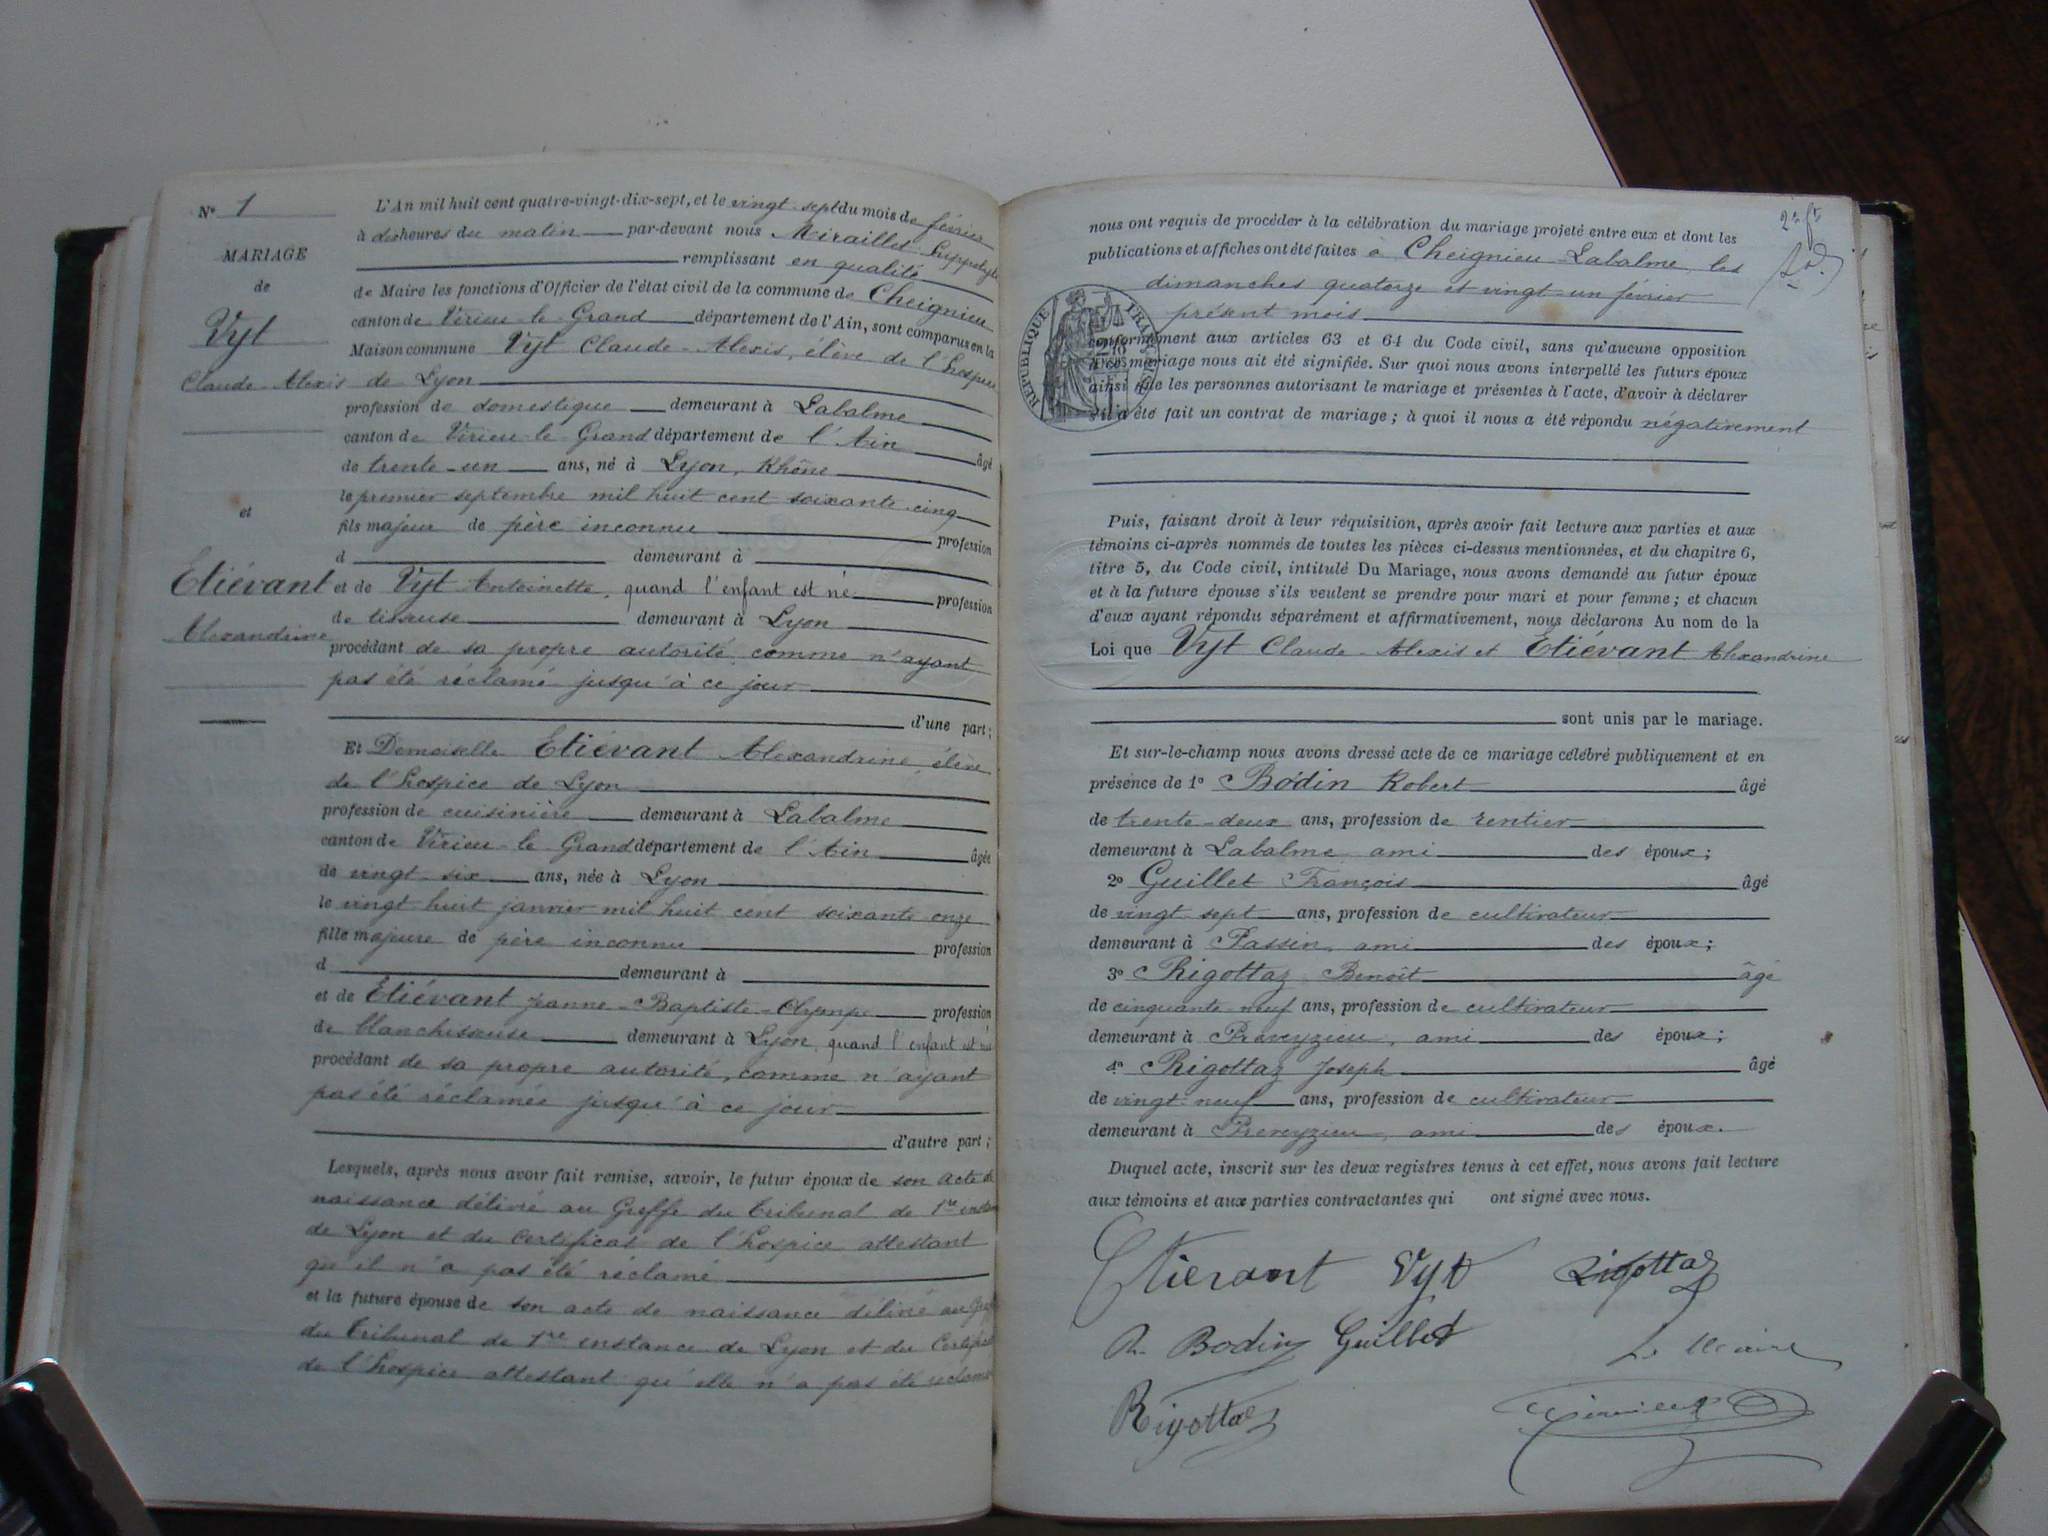 N° 1
MARIAGE
de
Vyt
Claude-Alexis
et
Etiévant
Alexandrine
L'An mil huit cent quatre-vingt-dix-sept, et le vingt-sept du mois de février
à dix heures du matin par-devant nous Miraillet Hyppolyte
remplissant en qualité
de Maire les fonctions d'Officier de l'état civil de la commune de Cheignieu
canton de Virieu-le-Grand département de l'Ain, sont comparus en la
Maison commune Vyt Claude-Alexis, élève de l'hospice
de Lyon
profession de domestique demeurant à Labalme
canton de Virieu-le-Grand département de l'Ain âgé
de trente-un ans, né à Lyon, Rhône
le premier septembre mil huit cent soixante-cinq
fils majeur de père inconnu profession
d demeurant à
et de Vyt Antoinette, quand l'enfant est né profession
de tisseuse demeurant à Lyon
procédant de sa propre autorité, comme n'ayant
pas été réclamé jusqu'à ce jour
d'une part ;
Et Demoiselle Etiévant Alexandrine, élève
de l'hospice de Lyon
profession de cuisinière demeurant à Labalme
canton de Virieu-le-Grand département de l'Ain âgée
de vingt-six ans, née à Lyon
le vingt-huit janvier mil huit cent soixante-onze
fille majeure de père inconnu profession
d demeurant à
et de Etiévant Jeanne-Baptiste-Olympe profession
de blanchisseuse demeurant à Lyon, quand l'enfant est né
procédant de sa propre autorité, comme n'ayant
pas été réclamée jusqu'à ce jour
d'autre part ;
Lesquels, après nous avoir fait remise, savoir, le futur époux de son acte de
naissance délivré au Greffe du Tribunal de 1re instance
de Lyon et du certificat de l'hospice attestant
qu'il n'a pas été réclamé
et la future épouse de son acte de naissance délivré au Greffe
du Tribunal de 1re instance de Lyon et du Certificat
de l'hospice attestant qu'elle n'a pas été réclamée
nous ont requis de procéder à la célébration du mariage projeté entre eux et dont les
publications et affiches ont été faites à Cheignieu-Labalme, les
dimanches quatorze et vingt-un février
présent mois
RÉPUBLIQUE FRANÇAISE
conformément aux articles 63 et 64 du Code civil, sans qu'aucune opposition
à ce mariage nous ait été signifiée. Sur quoi nous avons interpellé les futurs époux
ainsi que les personnes autorisant le mariage et présentes à l'acte, d'avoir à déclarer
s'il a été fait un contrat de mariage ; à quoi il nous a été répondu négativement
Puis, faisant droit à leur réquisition, après avoir fait lecture aux parties et aux
témoins ci-après nommés de toutes les pièces ci-dessus mentionnées, et du chapitre 6,
titre 5, du Code civil, intitulé Du Mariage, nous avons demandé au futur époux
et à la future épouse s'ils veulent se prendre pour mari et pour femme ; et chacun
d'eux ayant répondu séparément et affirmativement, nous déclarons Au nom de la
Loi que Vyt Claude-Alexis et Etiévant Alexandrine
sont unis par le mariage.
Et sur-le-champ nous avons dressé acte de ce mariage célébré publiquement et en
présence de 1° Bodin Robert âgé
de trente-deux ans, profession de rentier
demeurant à Labalme, ami des époux ;
2° Guillet François âgé
de vingt-sept ans, profession de cultivateur
demeurant à Passin, ami des époux ;
3° Rigottaz Benoît âgé
de cinquante-neuf ans, profession de cultivateur
demeurant à Preveyzieu, ami des époux ;
4° Rigottaz Joseph âgé
de vingt-neuf ans, profession de cultivateur
demeurant à Preveyzieu, ami des époux.
Duquel acte, inscrit sur les deux registres tenus à cet effet, nous avons fait lecture
aux témoins et aux parties contractantes qui ont signé avec nous.
Etievant Vyt Rigottaz
R. Bodin Guillet Le Maire
Rigottaz